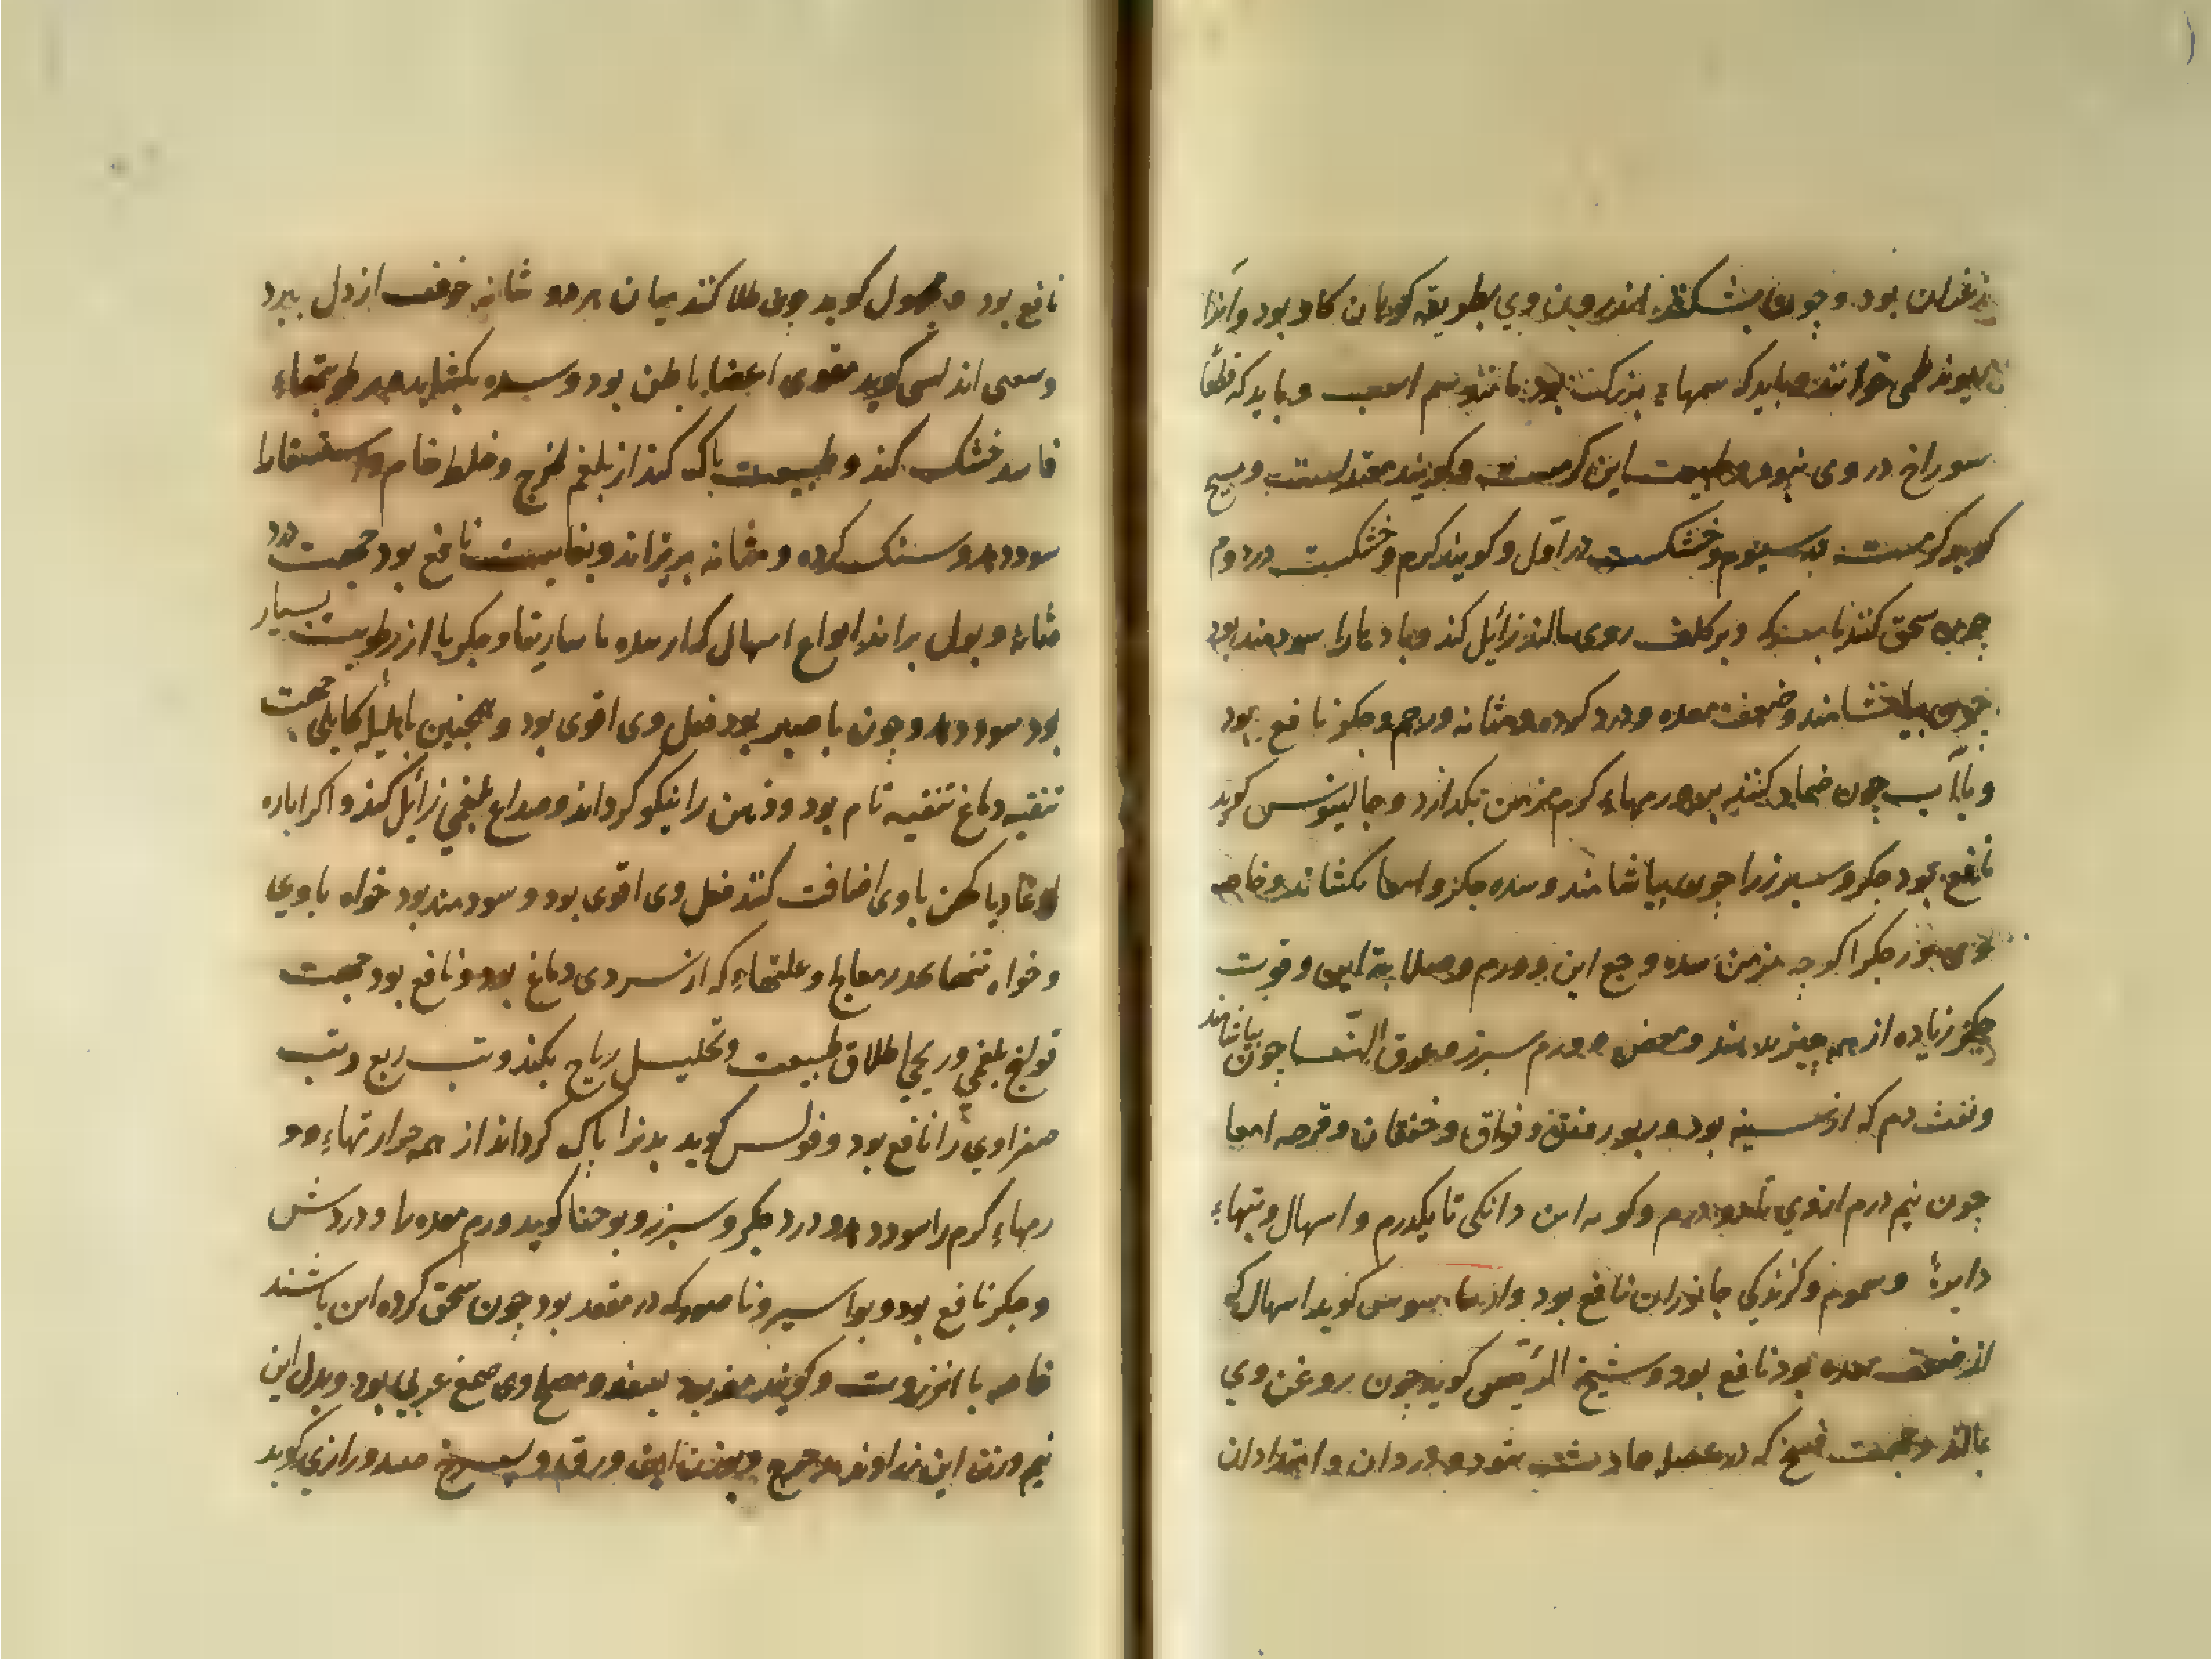 زعفران بود و چون بشکنند اندرون وي بطریقه کوهان کاو بود و آنرا
لحمی خوانند و باید که سمهاء بزرک بود مانند سم اسب و باید که قطعا
سوراخ در وی نبود و طبیعت این کرمست و کویند معتدلست و مسیح
کوید کرمست در سیوم و خشکست در اول و کویند کرم و خشکست در دوم
چون سحق کنند با سرکه و بر کلف روی مالند زائل کند و بادها را سودمند بود
چون بیاشامند و ضعف معده و درد کرده و مثانه و رحم و جکر نافع بود
و با آب چون ضماد کنند بر ورمهاء کرم مزمن بکدازد و جالینوس کوید
نافع بود جکر و سپرز را چون بیاشامند و سده جکر و امعا بکشاند و خاصه
جکر اکرچه مزمن سده و جع این و ورم و صلابة این و قوت
جکر زیاده از همه چیز بدهند و مغص و ورم سپرز و عرق النسا چون بیاشامند
و نفث دم که از سینه بود و ربو و فتق و فواق و خفقان و قرحه امعا
چون نیم درم ازوي تا دو درم و کویند این دانکی تا یکدرم و اسهال و تبهاء
دایرهٔ و سموم و کزندکی جانوران نافع بود و کوید اسهال که
از ضعف معده بود نافع بود و شیخ الرئیس کوید چون روغن وي
بمالند و جهت فسخ که در عضل حادث شود و دردان و امتدادان
نافع بود و مجهول کوید چون طلا کنند میان هر دو شانه خوف از دل ببرد
و اندلسی کوید مقوی اعضا باطن بود و سده بکشاید و رطوبتهاء
فاسد خشک کند و طبیعت پاک کند از بلغم لزج و خلط خام و استسقا را
سود دهد و سنک کرده و مثانه بریزاند و بغایت نافع بود جهت درد
مثانه و بول براند انواع اسهال کبار سده ماساریقا و جکر یا از رطوبت بسیار
بود سود دهد و چون با صبر بود فعل وی اقوی بود و همچنین با هلیلهٔ کابلی جهت
تنقیه دماغ تنقیه تام بود و ذهن را نیکو کرداند و صداع بلغمي زائل کند و اکر اباره
لوغادیا کهن با وی اضافت کنند فعل وی اقوی بود و سودمند بود خواه با وي
و خواه تنها در معالج و علتهاء که از سردی دماغ بود و نافع بود جهت
قولنج بلغمي و ریحي اطلاق طبیعت و تحلیل ریاح بکند و تب ربع و تب
صفراوي را نافع بود و فولس کوید بدن را پاک کرداند از همه حرارتهاء و و
رمهاء کرم را سود دهد و درد جکر و سپرز و یوحنا کوید ورم معده را و دردش
و جکر نافع بود و بواسیر و ناصور که در مقعد بود چون سحق کرده این پاشند
خاصه با انزروت و کویند مضرست بسفل و مصلح وی صمغ عربي بود و بدل این
نیم وزن این زراوند مدحرج و بوزن این ورقه و سیسرخ صدو رازي کوید